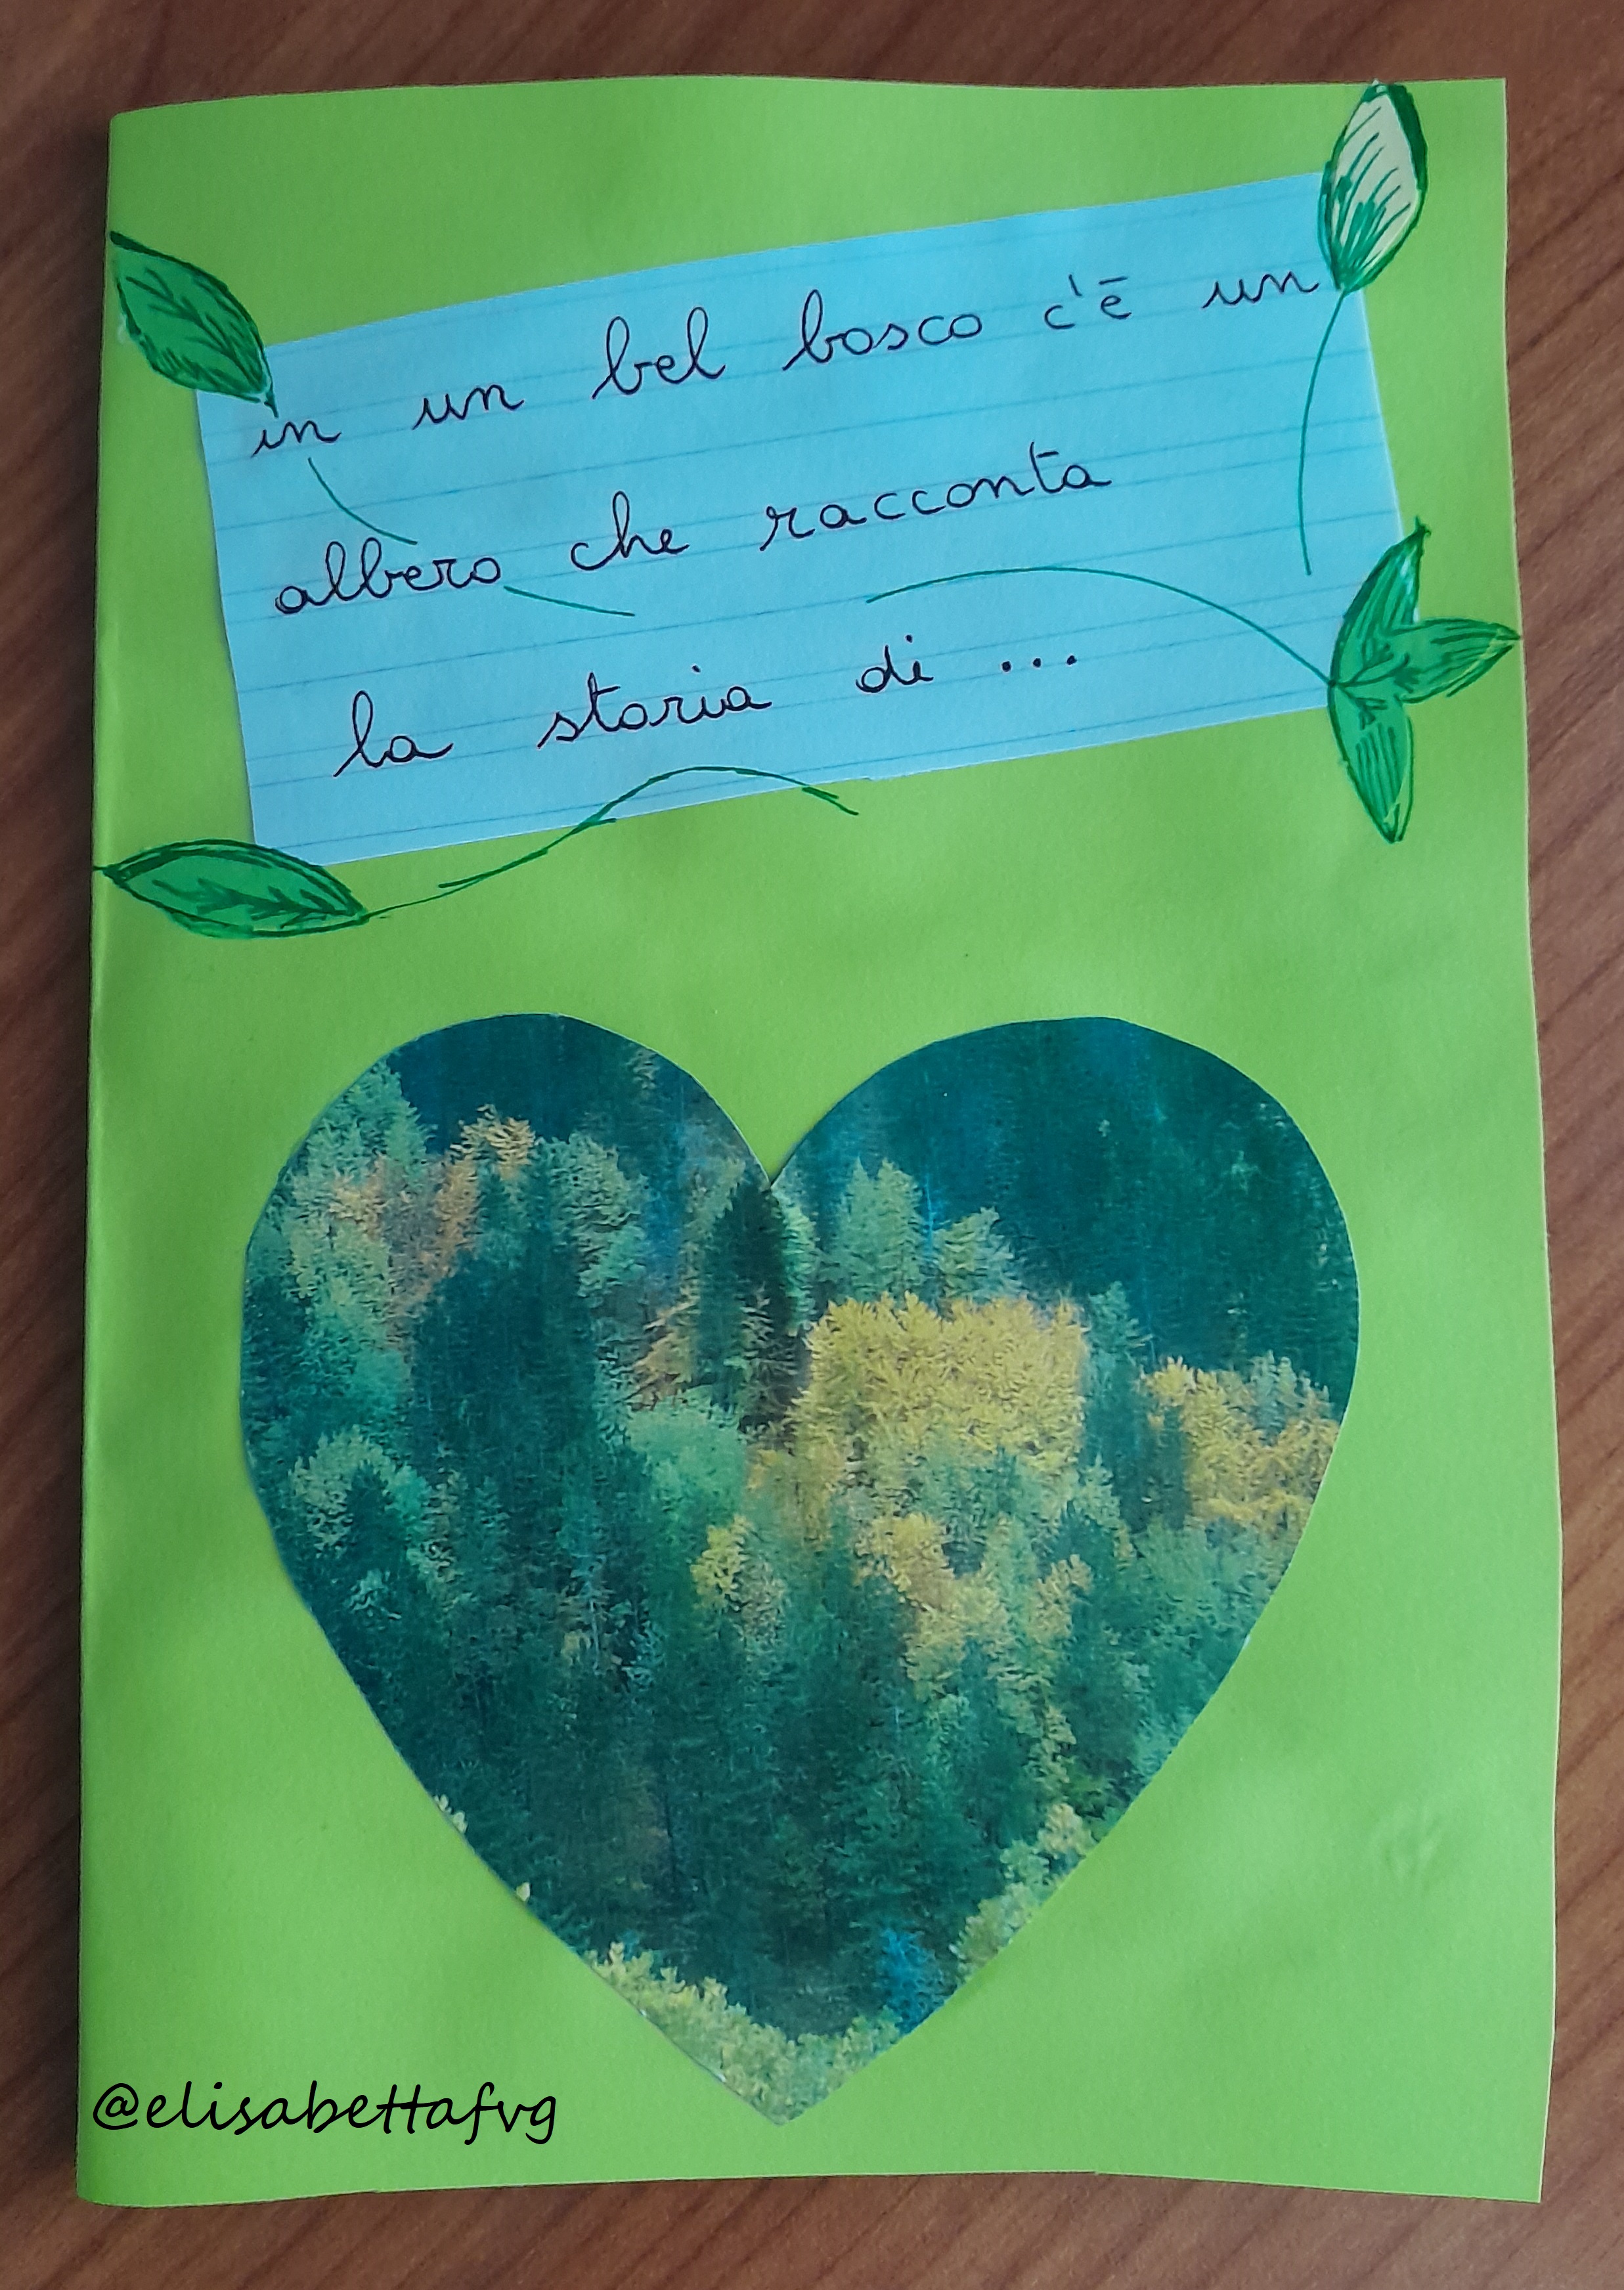 in un bel bosco c'è un
albero che racconta
la storia di ...
@elisabettafvg